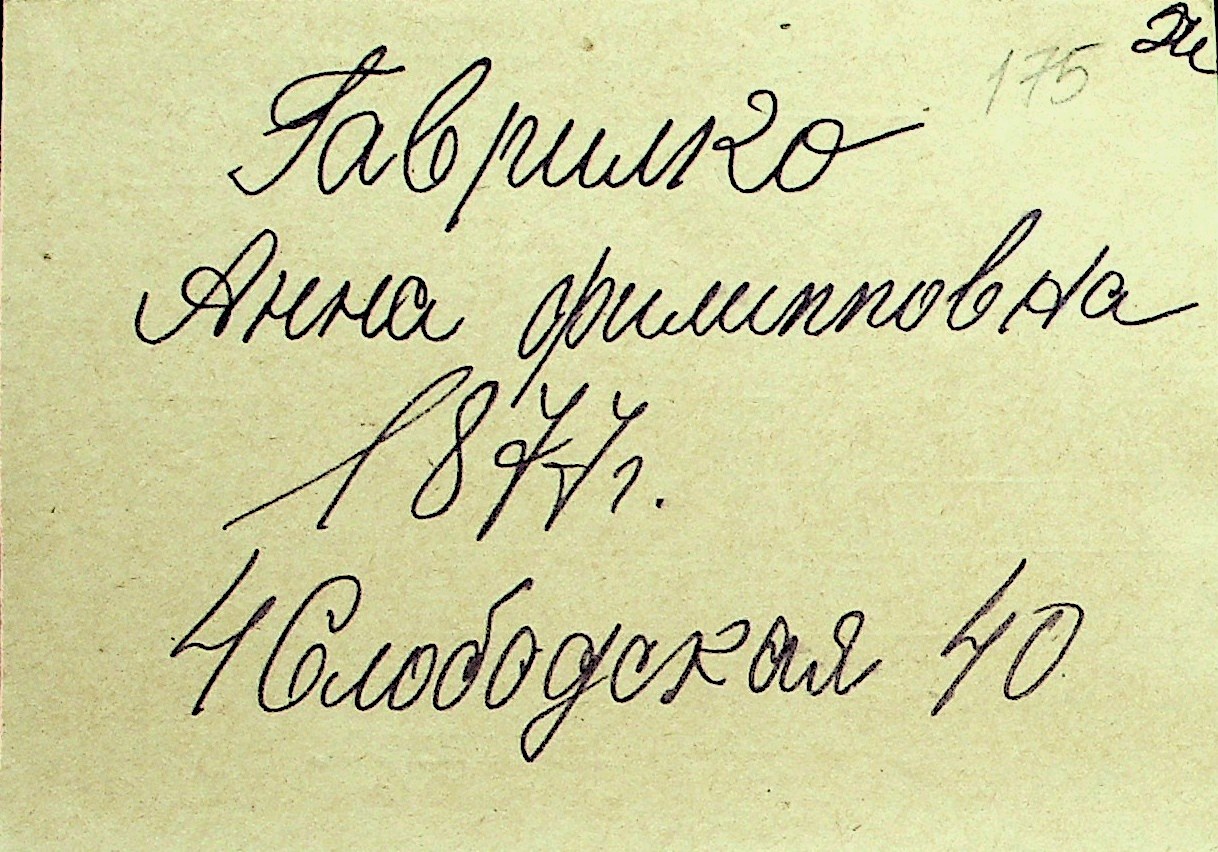 175
Гаврилко
Анна Филипповна
1877г.
4 Слободская 40